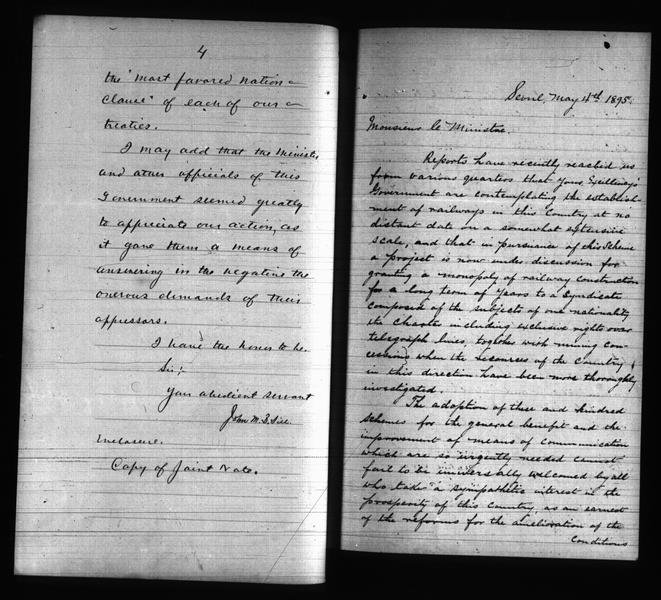 4
the "most favored nation
clause" of each of our
treaties.
I may add that the Minister
and other officials of this
Government seemed greatly
to appreciate our action, as
it gave them a means of
answering in the negative the
onerous demands of their
oppressors.
I have the honor to be.
Sir:
Your obedient servant
John M. B. Sill
Enclosure.
Copy of Joint Note.
Seoul, May 4th 1895.
Monsieur le Ministre.
Reports have recently reached us
from various quarters that your Excellency's
Government are contemplating the establish-
ment of railways in this Country at no
distant date on a somewhat extensive
scale, and that in pursuance of this scheme
a project is now under discussion for
granting a monopoly of railway construction
for a long term of years to a Syndicate
composed of the subjects of one nationality
the Charter including exclusive rights over
telegraph lines, together with mining con-
cessions when the resources of the Country
in this direction have been more thoroughly
investigated.
The adoption of these and kindred
schemes for the general benefit and the
improvement of means of communication
which are so urgently needed cannot
fail to be universally welcomed by all
who take a sympathetic interest in the
prosperity of this Country, as an earnest
of the reforms for the amelioration of the
Conditions